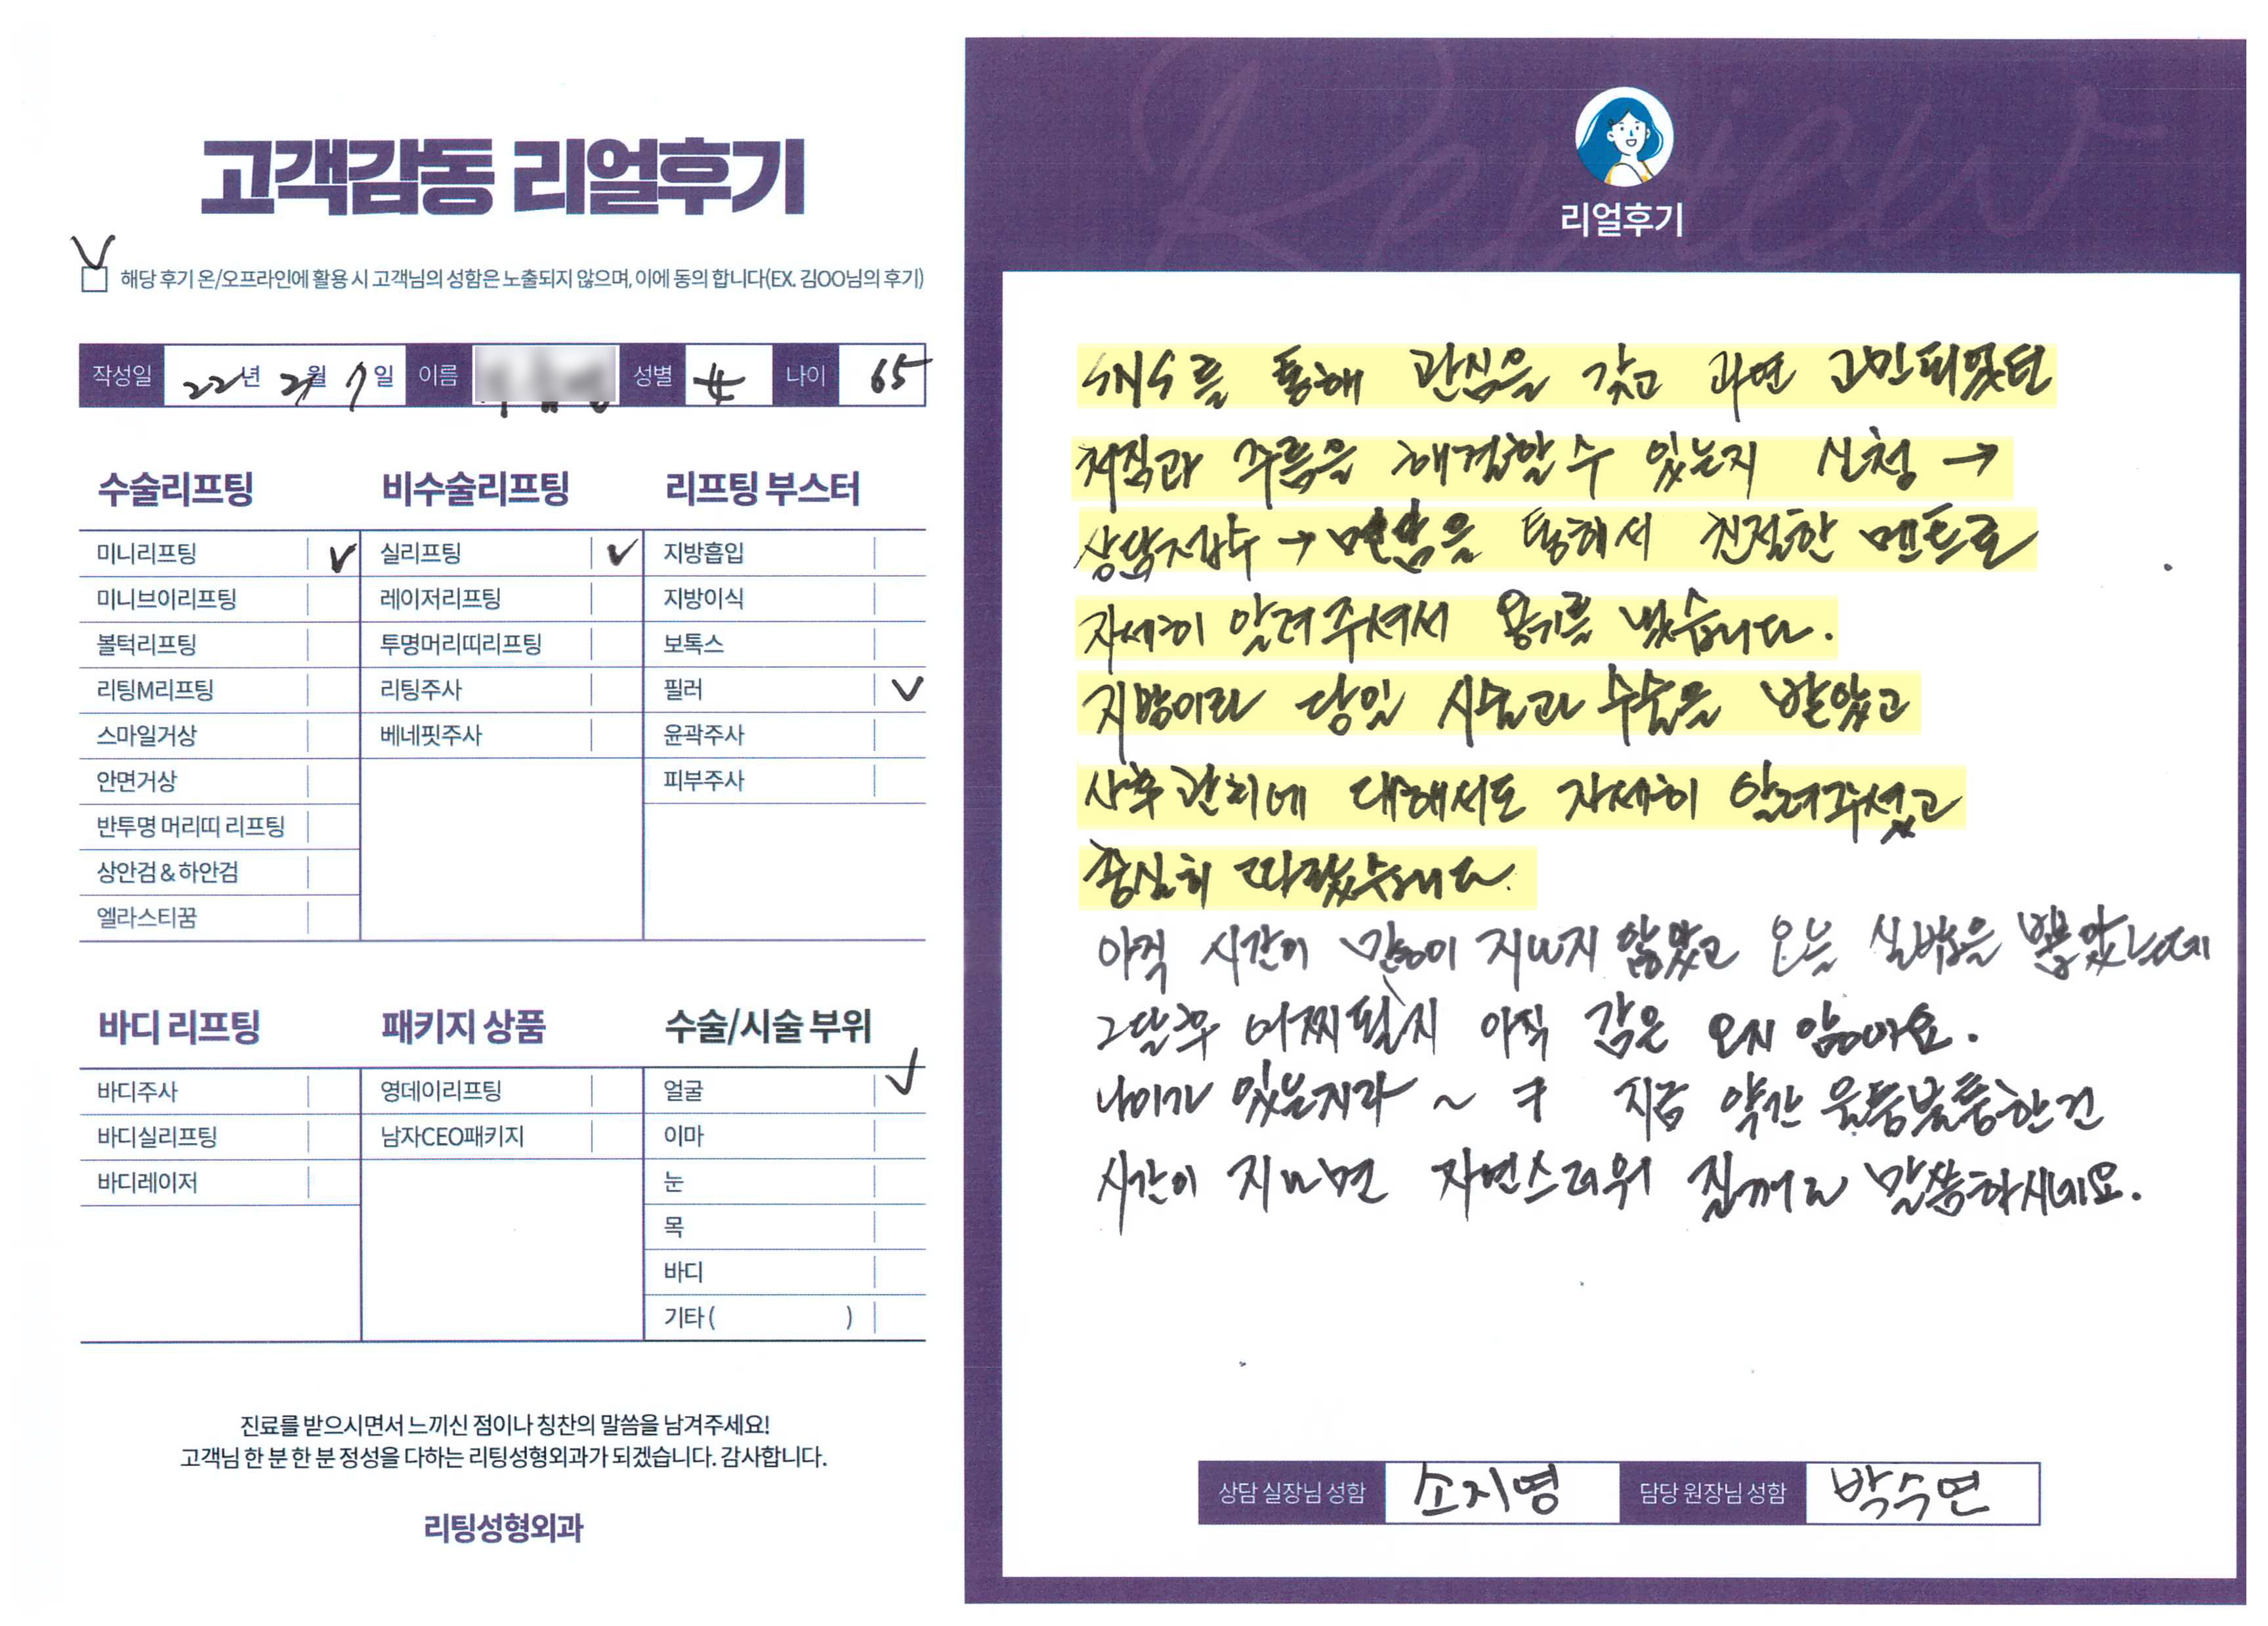 고객감동 리얼후기
해당 후기 온/오프라인에 활용 시 고객님의 성함은 노출되지 않으며, 이에 동의 합니다(EX. 김OO님의 후기)
작성일 22년 2월 7일 이름 성별 女 나이 65
수술리프팅
미니리프팅 V
미니브이리프팅
볼턱리프팅
리팅M리프팅
스마일거상
안면거상
반투명 머리띠 리프팅
상안검 & 하안검
엘라스티꿈
비수술리프팅
실리프팅 V
레이저리프팅
투명머리띠리프팅
리팅주사
베네핏주사
리프팅 부스터
지방흡입
지방이식
보톡스
필러 V
윤곽주사
피부주사
바디 리프팅
바디주사
바디실리프팅
바디레이저
패키지 상품
영데이리프팅
남자CEO패키지
수술/시술 부위
얼굴 V
이마
눈
목
바디
기타 ( )
진료를 받으시면서 느끼신 점이나 칭찬의 말씀을 남겨주세요!
고객님 한 분 한 분 정성을 다하는 리팅성형외과가 되겠습니다. 감사합니다.
리팅성형외과
Review
리얼후기
를 통해 관심을 갖고 과연 고민되었던
처짐과 주름을 해결할 수 있는지 신청 →
상담접수 → 을 통해서 친절한 멘트로
자세히 알려주셔서 용기를 냈습니다.
지방이라 당일 시술과 수술을 받았고
사후관리에 대해서도 자세히 알려주셨고
충실히 따랐습니다.
아직 시간이 많이 지나지 않았고 오늘 실밥을 뽑았는데
그달후 어찌될지 아직 감은 오지 않아요.
나이가 있는지라 ~ ㅋ 지금 약간 울퉁불퉁한건
시간이 지나면 자연스러워 질꺼라 말씀하시네요.
상담 실장님 성함 소지영 담당 원장님 성함 박수연